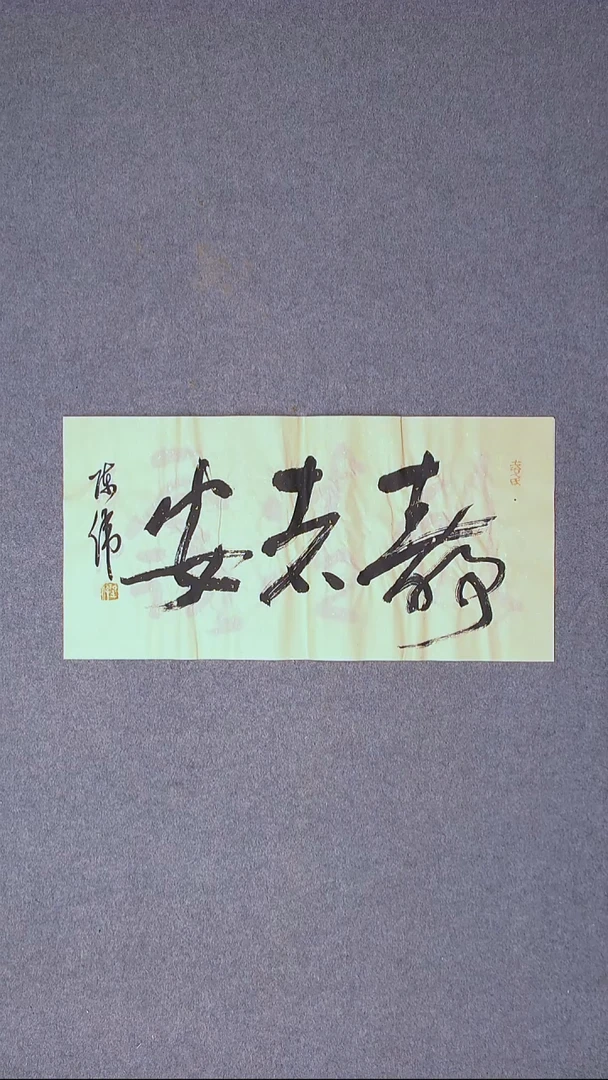 静者安
陈伟